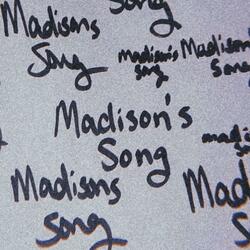 Song
Madisons
Song
madison's
song
Madison's
Song
Madison's
Song
Madisons
Song